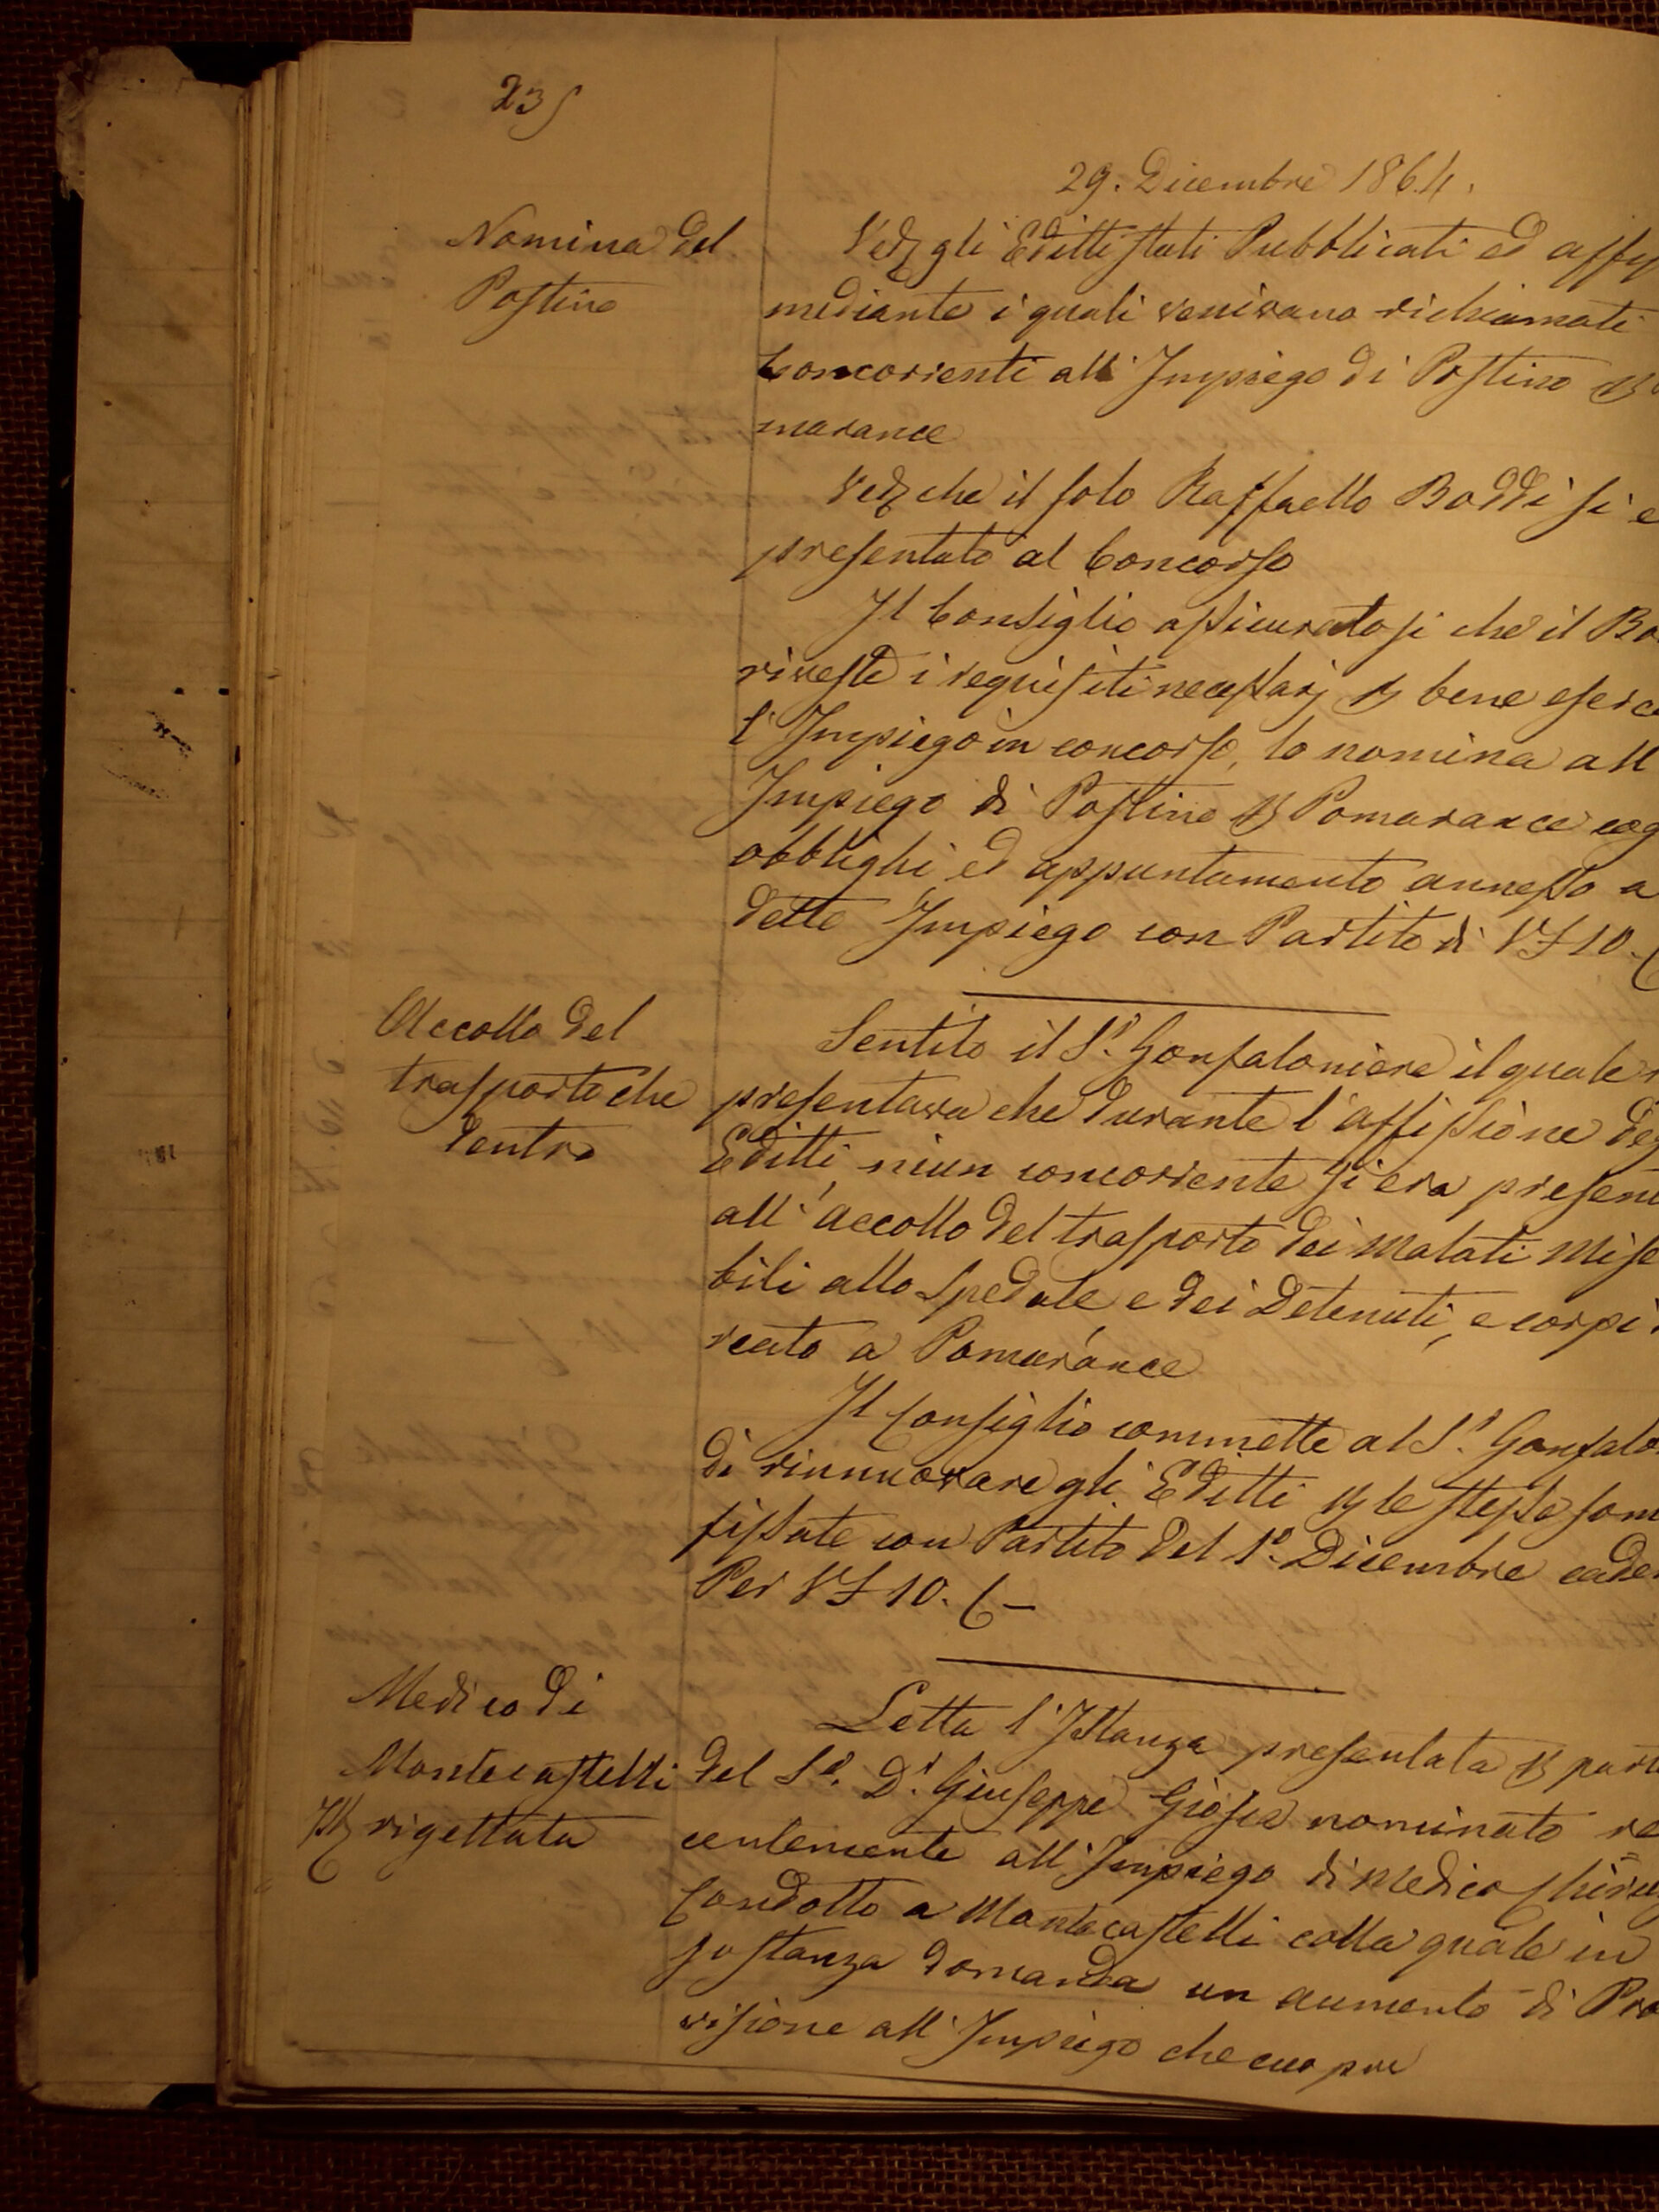 235
29. Dicembre 1864.
Nomina del
Postino
Ved. gli Editti stati Pubblicati ed affis
mediante i quali venivano richiamati
Concorrenti all' Impiego di Postino
marance
Ved. che il solo Raffaello Boddi si e
presentato al Concorso
Il Consiglio assicuratosi che il Bo
riveste i requisiti necessarj p bene eserci
l'Impiego in concorso, lo nomina all
Impiego di Postino p Pomarance cog
obblighi ed appuntamento annesso a
detto Impiego con Partito di VF 10.
Accollo del
trasporto che
dentro
Sentito il Sr. Gonfaloniere il quale r
presentava che durante l'affissione deg
Editti, niun concorrente si era present
all' accollo del trasporto dei Malati Mise
bili allo Spedale, e dei Detenuti, e corpi
reato a Pomarance
Il Consiglio commette al Sr. Gonfalo
di rinnuovare gli Editti p le stesse som
fissate con Partito del 1º. Dicembre caden
Per VF 10.
Medico di
Montecastelli
rigettata
Letta l'Istanza presentata p parte
del Sr. Dr. Giuseppe nominato re
centemente all' Impiego di Medico Chirur
Condotto a Montecastelli colla quale in
sostanza domanda un aumento di Pro
visione all' Impiego che